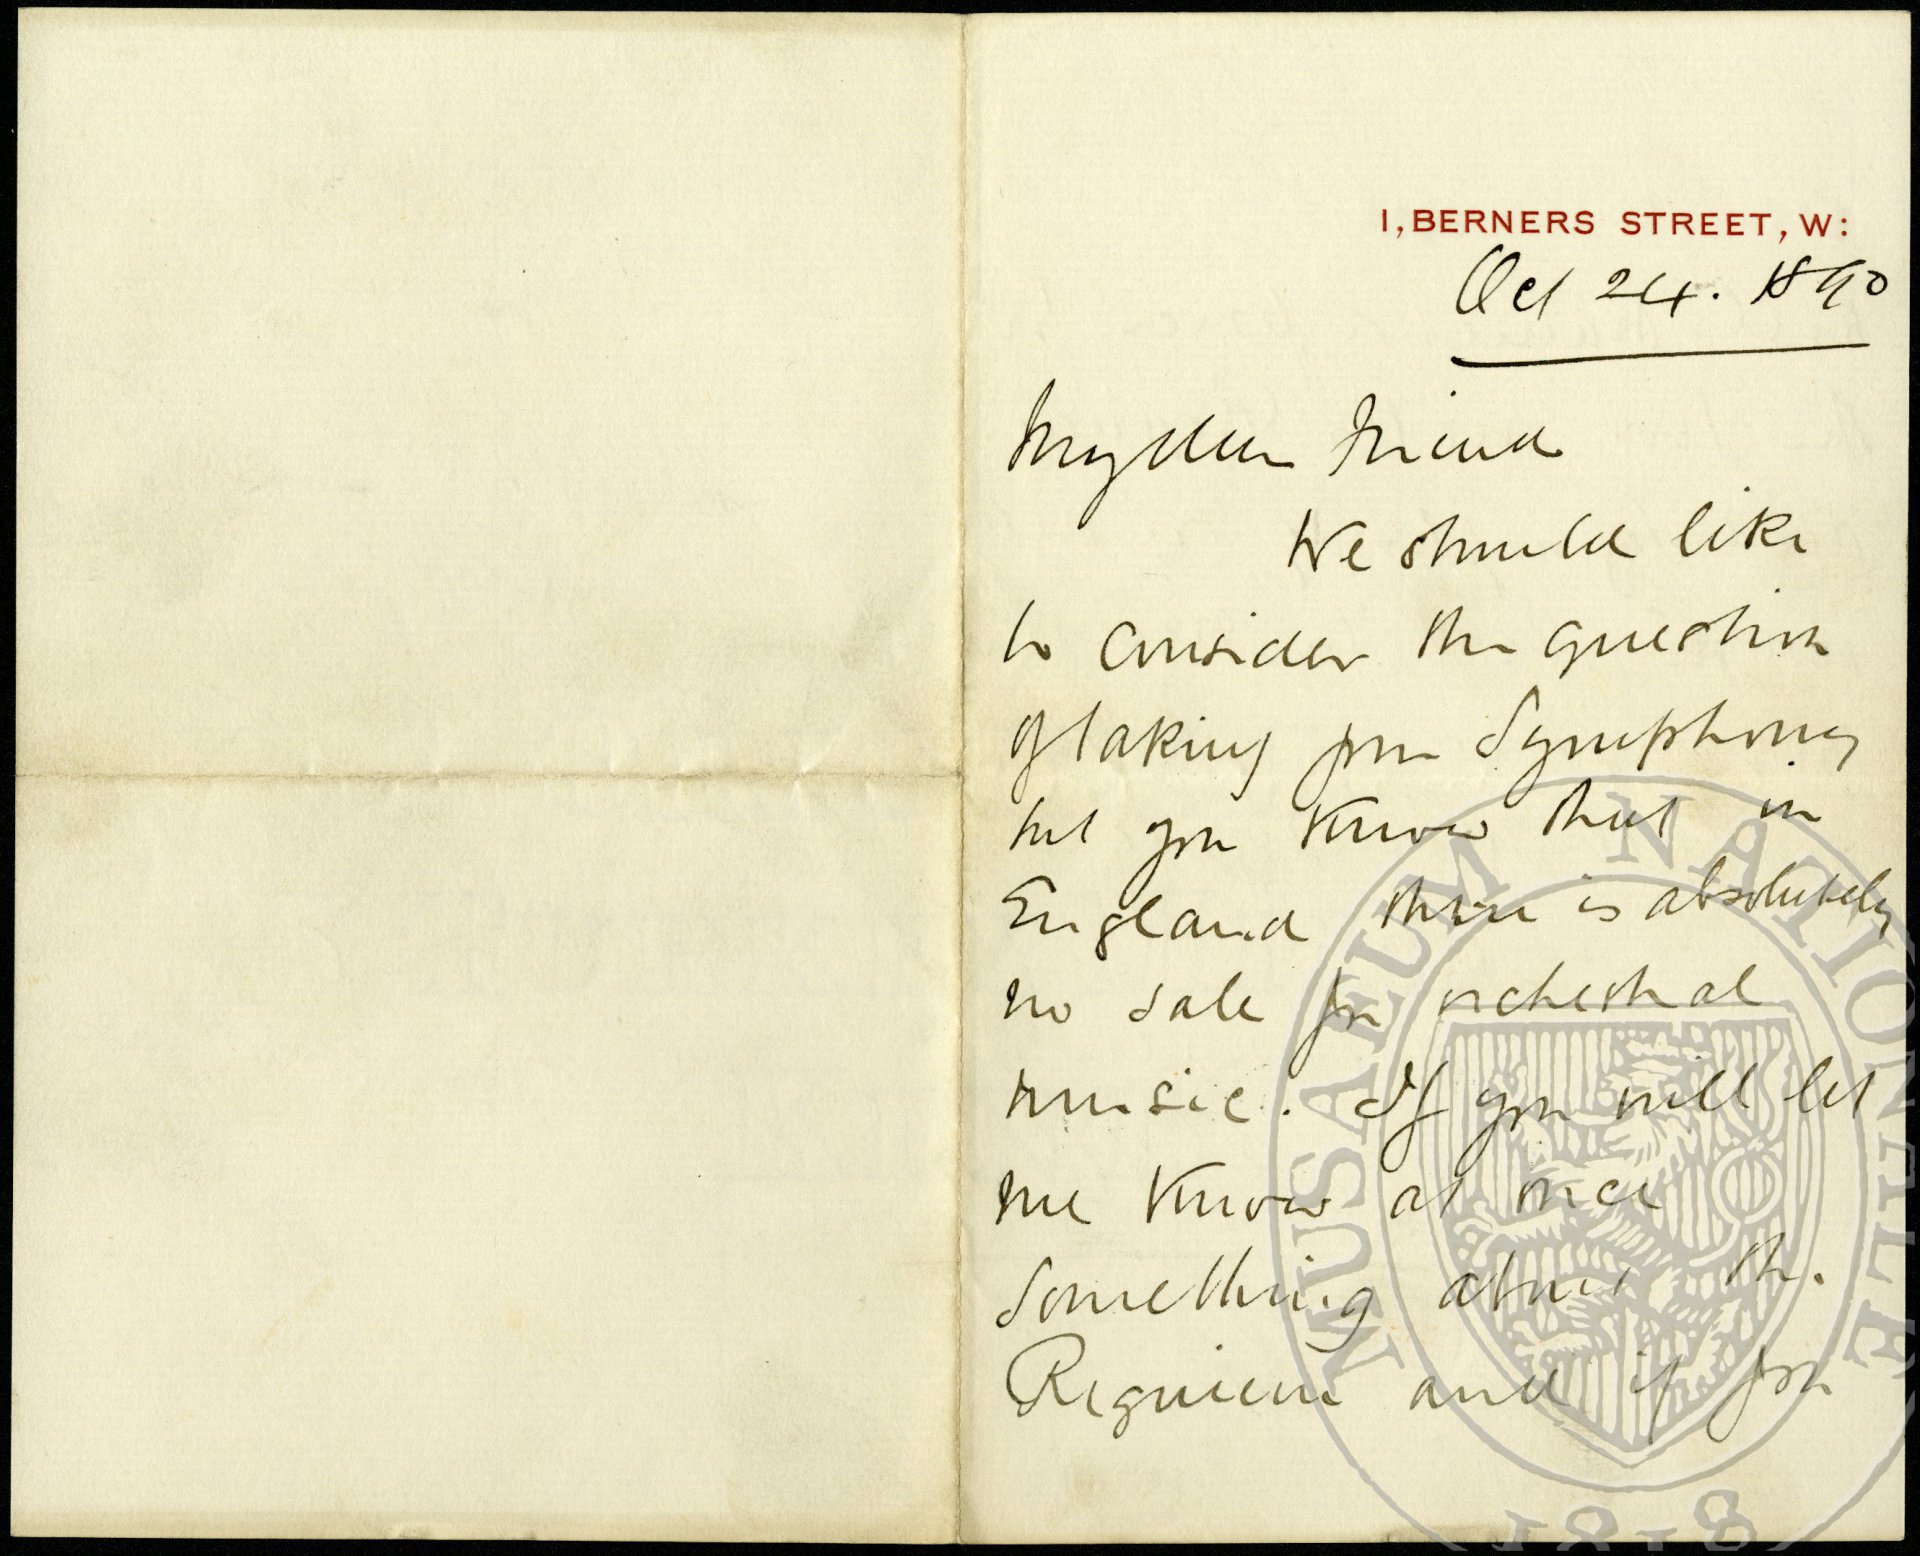 1, BERNERS STREET, W:
Oct 24. 1890
My dear Friend
We should like
to consider the question
of taking your Symphony
but you know that in
England there is absolutely
no sale for orchestral
music. If you will let
me know at once
something about the
Requiem and if you
MUSAEUM NATIONALE
1818